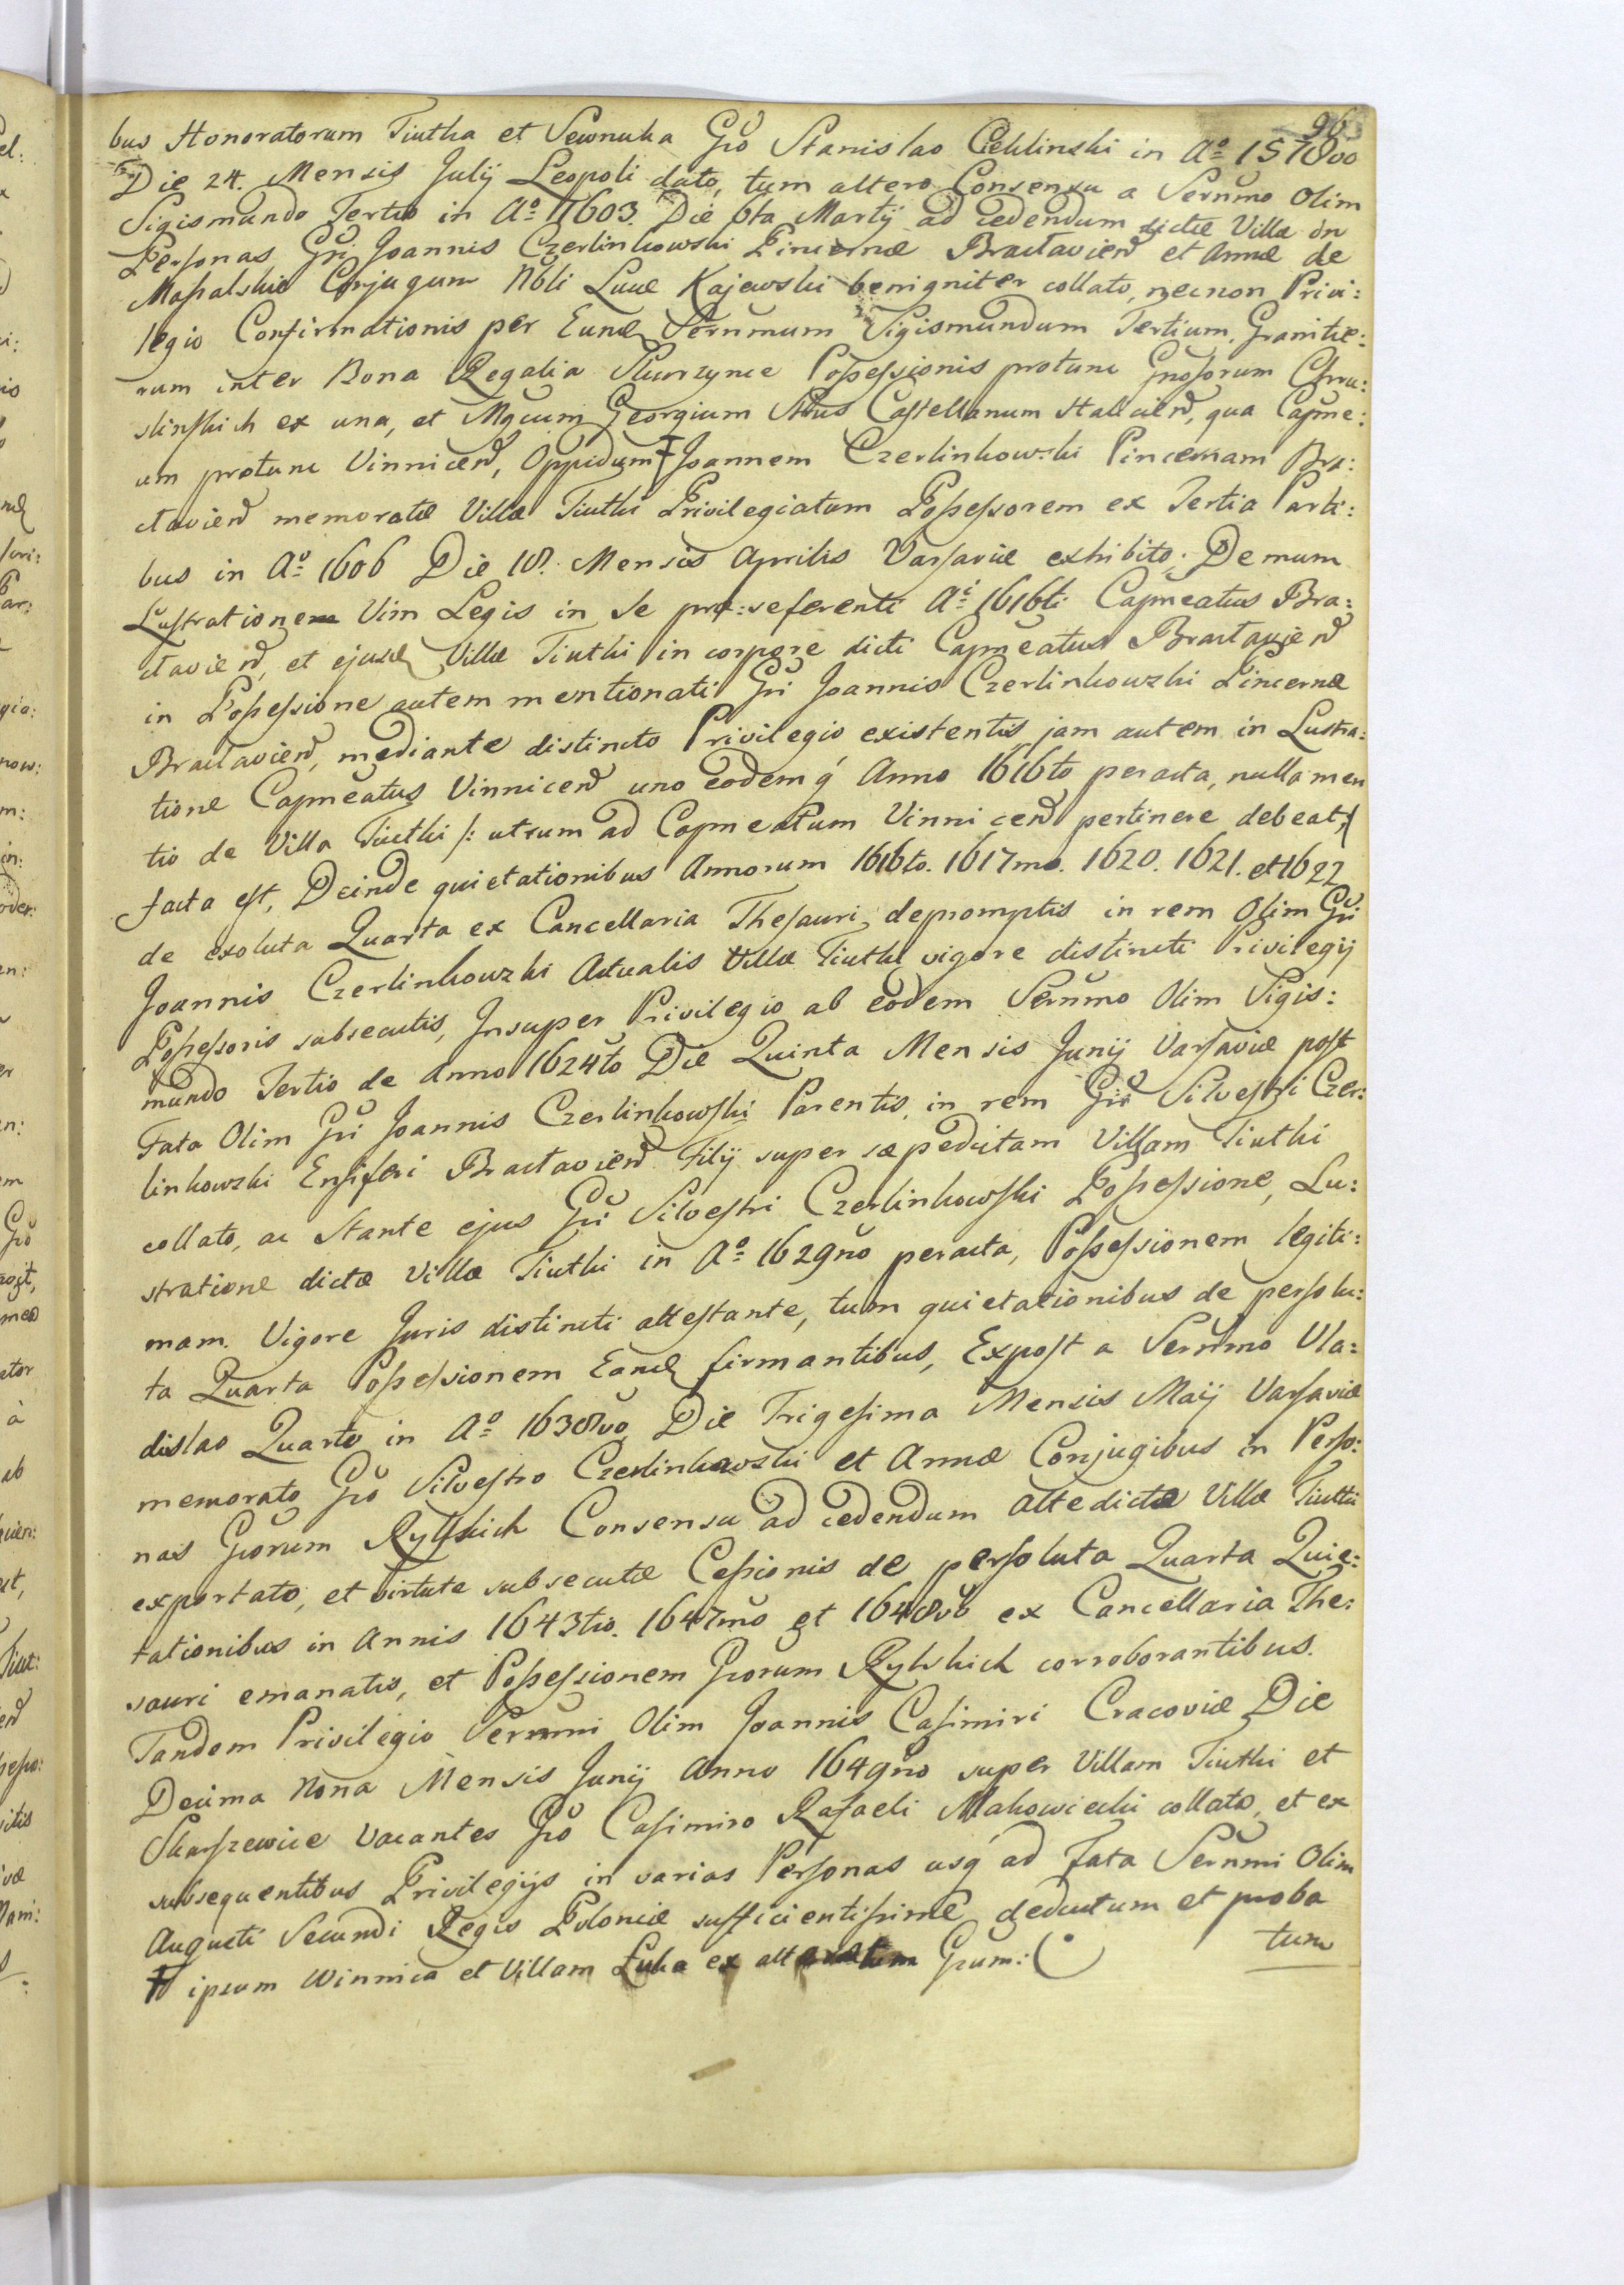 96
bus Honoratorum Tiutka et Sewnuka Gŏ Stanislao Cieklinski in Aº 1578vo
Die 24. Mensis Julij Leopoli dato, tum altero Consensu a Sernmo Olim
Sigismundo Tertio in Aº 1603. Die 6ta Martij ad cedendum dictæ Villæ in
Personas Gři Joannis Czerlinkowski Pincernæ Bractavien et Annæ de
Conjugum Nbli Lucæ Kajewski benigniter collato, necnon Privi:
legio Confirmationis per Eund Sernmum Sigismundum Tertium, Granitie:
rum inter Bona Regalia Possessionis protunc Gnosorum
slinskich ex una, et Mgcum Georgium Castellanum Halicien, qua Capne:
um protunc Vinnicen, Oppidum Ŧ Joannem Czerlinkowski Pincernam Bra:
ctavien memoratæ Villæ Tiutki Privilegiatum Possessorem ex Tertia Parti:
bus in Aº 1606 Die 18. Mensis Aprilis Varsaviæ exhibito; Demum
Lustratione Vim Legis in se præ:seferenti Ai 1616ti Capneatus Bra:
ctavien, et ejusd Villæ Tiutki in corpore dicti Capneatus Bractavien
in Possessione autem mentionati Gři Joannis Czerlinkowski Pincernæ
Bractavien, mediante distincto Privilegio existentis, jam autem in Lustra:
tione Capneatus Vinnicen uno eodemq́ Anno 1616to peracta, nulla men
tio de Villa Tiutki /: utrum ad Capneatum Vinnicen pertinere debeat :/
facta est, Deinde quietationibus Annorum 1616to. 1617mo. 1620. 1621. et 1622
de exoluta Quarta ex Cancellaria Thesauri depromptis in rem Olim Gři
Joannis Czerlinkowski Actualis Villæ Tiutki vigore distincti Privilegij
Possessoris subsecutis, Insuper Privilegio ab eodem Sernmo Olim Sigis:
mundo Tertio de Anno 1624to Die Quinta Mensis Junij Varsaviæ post
Fata Olim Gři Joannis Czerlinkowski Parentis, in rem Gři Silvestri Czer:
linkowski Ensiferi Bractavien Filij super sæpedictam Villam Tiutki
collato, ac Stante ejus Gři Silvestri Czerlinkowski Possessione, Lu:
stratione dictæ Villæ Tiutki in Aº 1629no peracta, Possessionem legiti:
mam Vigore Juris distincti attestante, tum quietationibus de persolu:
ta Quarta Possessionem Eand firmantibus, Expost a Sernmo Vla:
dislao Quarto in Aº 1638vo Die Trigesima Mensis Maij Varsaviæ
memorato Gřo Silvestro Czerlinkowski et Annæ Conjugibus in Perso:
nas Grorum Rylskich Consensu ad cedendum attedictæ Villæ Tiutki
exportato, et virtute subsecutæ Cessionis de persoluta Quarta Quie:
tationibus in Annis 1643tio. 1647mo et 1648vo ex Cancellaria The:
sauri emanatis, et Possessionem Grorum Rylskich corroborantibus.
Tandem Privilegio Sernmi Olim Joannis Casimiri Cracoviæ Die
Decima Nona Mensis Junij Anno 1649no super Villam Tiutki et
Skarszewice Vacantes Gřo Casimiro Rafaeli Makowiecki collato, et ex
subsequentibus Privilegijs in varias Personas usq́ ad Fata Sernmi Olim
Augusti Secundi Regis Poloniæ sufficientissime deductum et proba
tum
Ŧ ipsum Winnica et Villam Luka ex Grum: